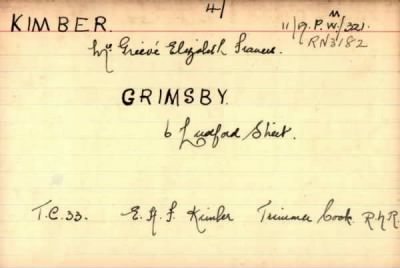 4/
KIMBER.
11/9. P.W./M/321.
RN3182
Mrs Grievé Elizabeth Frances.
GRIMSBY.
6 Ludford Street.
T.C. 33. E. A. F. Kimber Trimmer Cook. R.N.R.